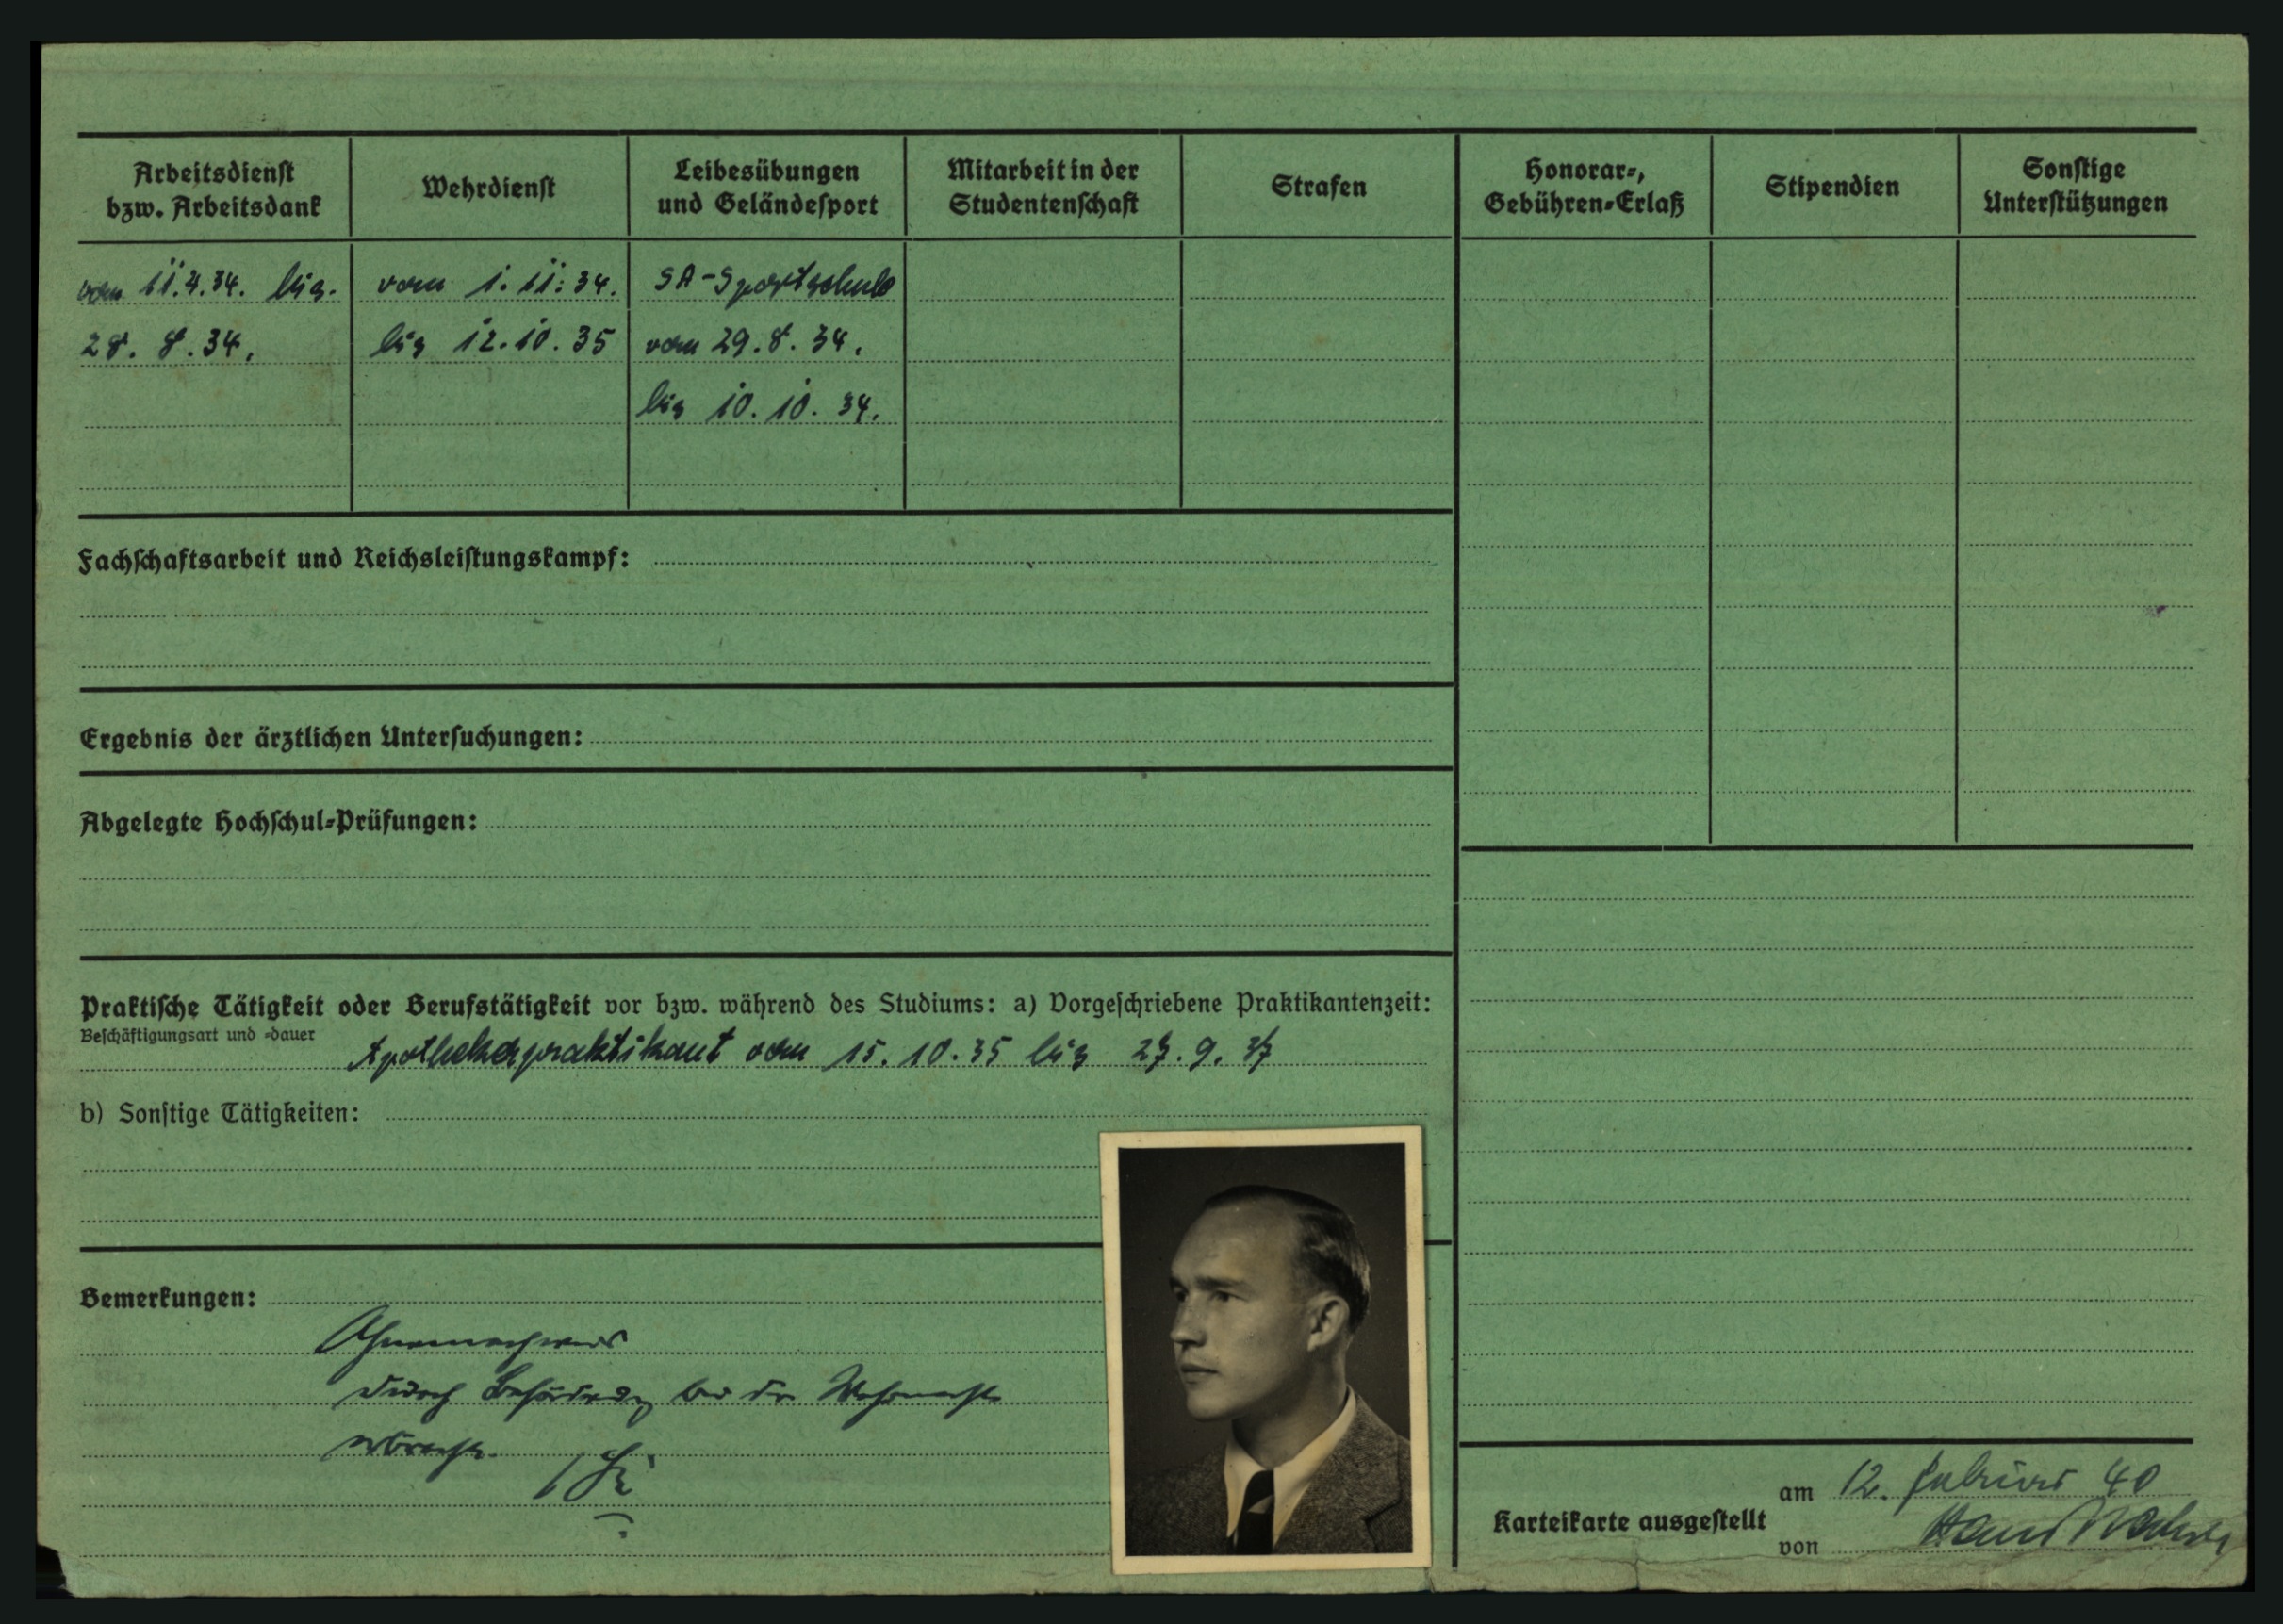 Arbeitsdienst
bzw. Arbeitsdank
Wehrdienst
Leibesübungen
und Geländesport
Mitarbeit in der
Studentenschaft
Strafen
Honorar-,
Gebühren-Erlaß
Stipendien
Sonstige
Unterstützungen
vom 11.4.34. bis.
28. 8. 34.
vom 1. 11. 34.
bis 12. 10. 35
SA-Sportschule
vom 29. 8. 34.
bis 10. 10. 34.
Fachschaftsarbeit und Reichsleistungskampf:
Ergebnis der ärztlichen Untersuchungen:
Abgelegte Hochschul-Prüfungen:
Praktische Tätigkeit oder Berufstätigkeit vor bzw. während des Studiums: a) Vorgeschriebene Praktikantenzeit:
Beschäftigungsart und -dauer
Apothekerpraktikant vom 15. 10. 35 bis 27. 9. 37
b) Sonstige Tätigkeiten:
Bemerkungen:
Ahnennachweis
durch Beförderung bei der Wehrmacht
erbracht.
Karteikarte ausgestellt
am 12. Februar 40
von Hans